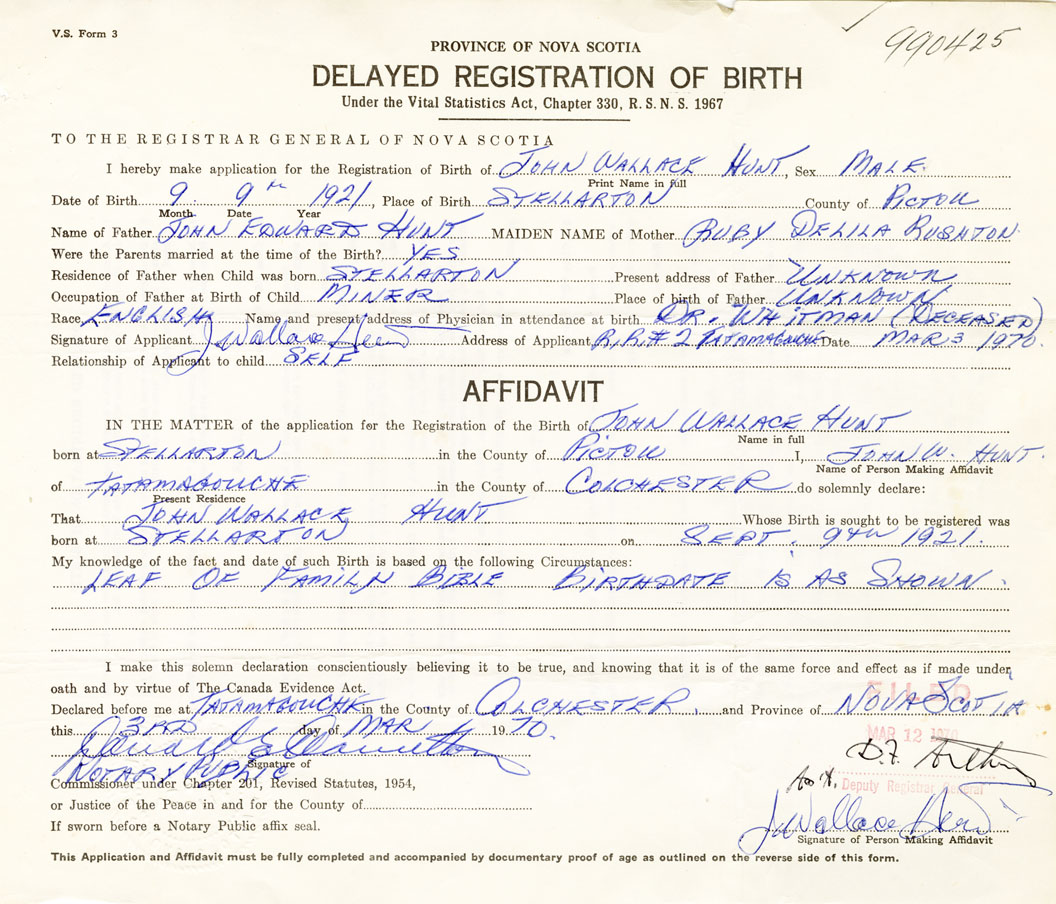 V.S. Form 3
990425
PROVINCE OF NOVA SCOTIA
DELAYED REGISTRATION OF BIRTH
Under the Vital Statistics Act, Chapter 330, R. S. N. S. 1967
TO THE REGISTRAR GENERAL OF NOVA SCOTIA
I hereby make application for the Registration of Birth of JOHN WALLACE HUNT, Sex MALE.
Print Name in full
Date of Birth 9 9th 1921, Place of Birth STELLARTON County of PICTOU
Month Date Year
Name of Father JOHN EDWARD HUNT MAIDEN NAME of Mother RUBY DELILA RUSHTON.
Were the Parents married at the time of the Birth? YES
Residence of Father when Child was born STELLARTON Present address of Father UNKNOWN
Occupation of Father at Birth of Child MINER Place of birth of Father UNKNOWN
Race ENGLISH Name and present address of Physician in attendance at birth DR. WHITMAN (DECEASED)
Signature of Applicant J Wallace Hunt Address of Applicant R.R.# 2 TATAMAGOUCHE Date MAR 3 1970.
Relationship of Applicant to child SELF
AFFIDAVIT
IN THE MATTER of the application for the Registration of the Birth of JOHN WALLACE HUNT
Name in full
born at STELLARTON in the County of PICTOU I, JOHN W. HUNT.
Name of Person Making Affidavit
of TATAMAGOUCHE in the County of COLCHESTER do solemnly declare:
Present Residence
That JOHN WALLACE HUNT Whose Birth is sought to be registered was
born at STELLARTON on SEPT. 9th 1921.
My knowledge of the fact and date of such Birth is based on the following Circumstances:
LEAF OF FAMILY BIBLE BIRTHDATE IS AS SHOWN.
I make this solemn declaration conscientiously believing it to be true, and knowing that it is of the same force and effect as if made under
oath and by virtue of The Canada Evidence Act.
Declared before me at TATAMAGOUCHE in the County of COLCHESTER and Province of NOVA SCOTIA
FILED
this 3RD day of MAR 1970.
MAR 12 1970
Signature of
NOTARY PUBLIC
D.F.
Commissioner under Chapter 201, Revised Statutes, 1954,
Deputy Registrar General
or Justice of the Peace in and for the County of
J Wallace Hunt
If sworn before a Notary Public affix seal.
Signature of Person Making Affidavit
This Application and Affidavit must be fully completed and accompanied by documentary proof of age as outlined on the reverse side of this form.